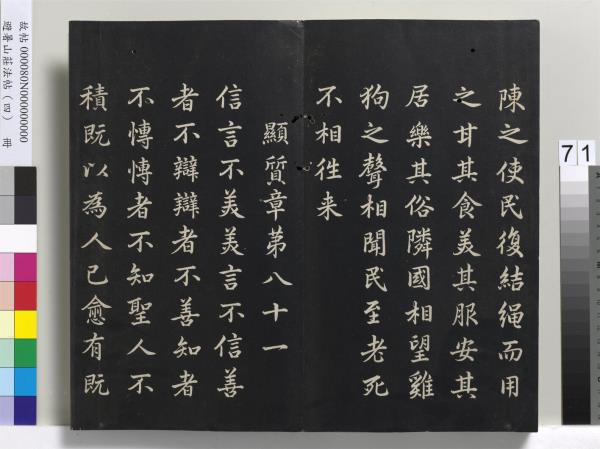 陳之使民復結繩而用
之甘其食美其服安其
居樂其俗隣國相望雞
狗之聲相聞民至老死
不相徃来
顯質章第八十一
信言不美美言不信善
者不辯辯者不善知者
不博博者不知聖人不
積既以為人已愈有既
故帖 000080N000000000
避暑山莊法帖(四) 冊
71